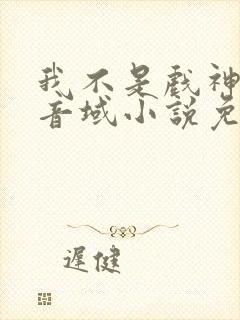 我不是戲神
音域小說免
遲健